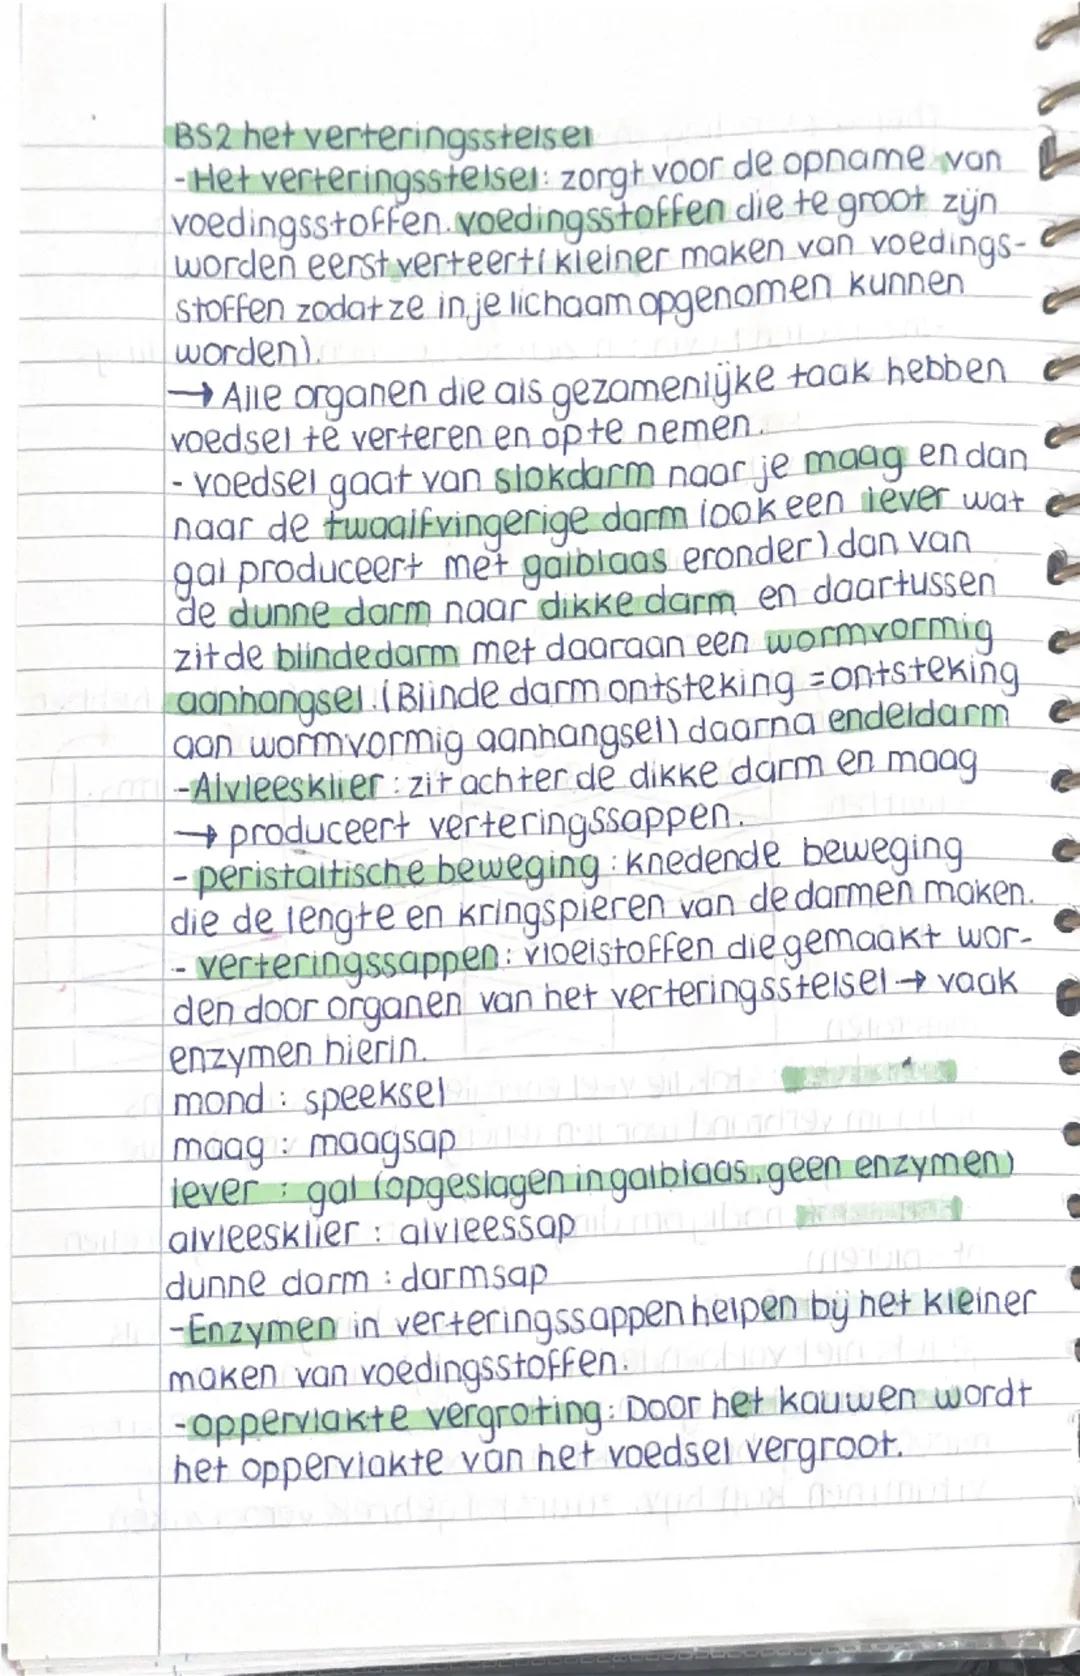 BS2 het verteringsstelsel
-Het verteringsstelsel: zorgt voor de opname van
voedingsstoffen. voedingsstoffen die te groot zijn
worden eerst verteert (kleiner maken van voedings-
stoffen zodat ze in je lichaam opgenomen kunnen
worden).
→ Alle organen die als gezamenlijke taak hebben
voedsel te verteren en op te nemen.
- voedsel gaat van slokdarm naar je maag en dan
naar de twaalfvingerige darm (ook een lever wat
gal produceert met galblaas eronder) dan van
de dunne darm naar dikke darm en daartussen
zit de blinde darm met daaraan een wormvormig
aanhangsel. (Blinde darm ontsteking = ontsteking
aan wormvormig aanhangsel) daarna endeldarm
-Alvleesklier : zit achter de dikke darm en maag
→ produceert verteringssappen.
- peristaltische beweging : knedende beweging
die de lengte en kringspieren van de darmen maken.
- verteringssappen: vloeistoffen die gemaakt wor-
den door organen van het verteringsstelsel → vaak
enzymen hierin.
mond : speeksel
maag : maagsap
lever : gal (opgeslagen in galblaas, geen enzymen)
alvleesklier : alvleessap
dunne darm : darmsap
-Enzymen in verteringssappen helpen bij het kleiner
maken van voedingsstoffen.
-oppervlakte vergroting: Door het kauwen wordt
het oppervlakte van het voedsel vergroot.